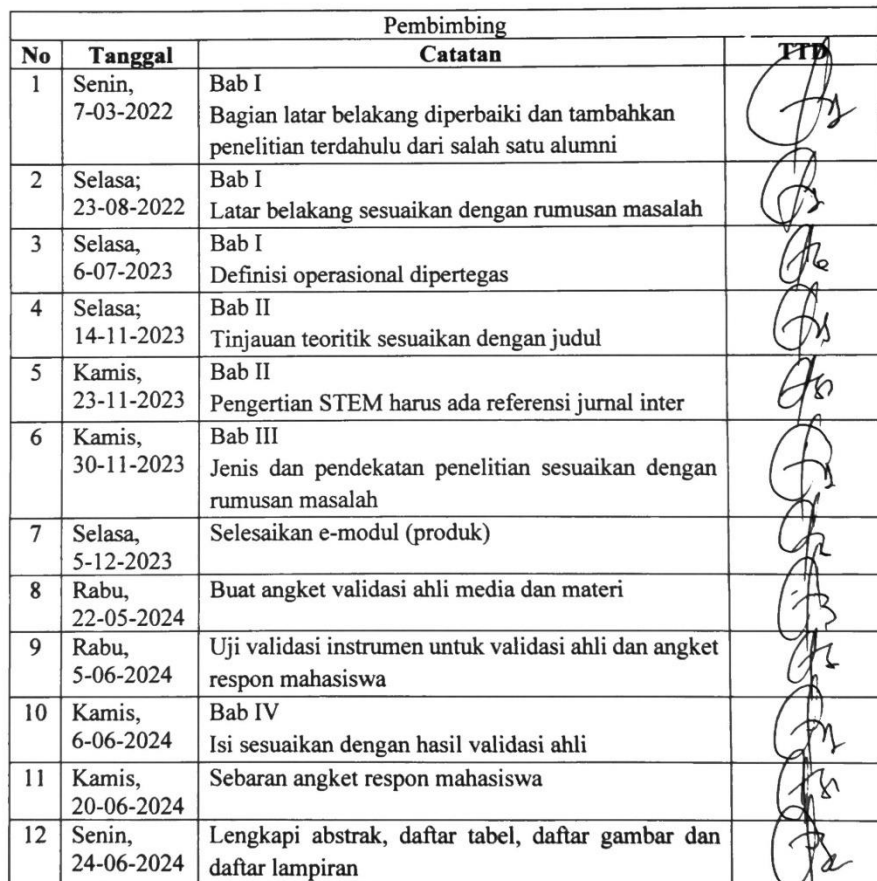 Pembimbing
No Tanggal Catatan TTD
1 Senin, Bab I
7-03-2022 Bagian latar belakang diperbaiki dan tambahkan
penelitian terdahulu dari salah satu alumni
2 Selasa; Bab I
23-08-2022 Latar belakang sesuaikan dengan rumusan masalah
3 Selasa, Bab I
6-07-2023 Definisi operasional dipertegas
4 Selasa; Bab II
14-11-2023 Tinjauan teoritik sesuaikan dengan judul
5 Kamis, Bab II
23-11-2023 Pengertian STEM harus ada referensi jurnal inter
6 Kamis, Bab III
30-11-2023 Jenis dan pendekatan penelitian sesuaikan dengan
rumusan masalah
7 Selasa, Selesaikan e-modul (produk)
5-12-2023
8 Rabu, Buat angket validasi ahli media dan materi
22-05-2024
9 Rabu, Uji validasi instrumen untuk validasi ahli dan angket
5-06-2024 respon mahasiswa
10 Kamis, Bab IV
6-06-2024 Isi sesuaikan dengan hasil validasi ahli
11 Kamis, Sebaran angket respon mahasiswa
20-06-2024
12 Senin, Lengkapi abstrak, daftar tabel, daftar gambar dan
24-06-2024 daftar lampiran